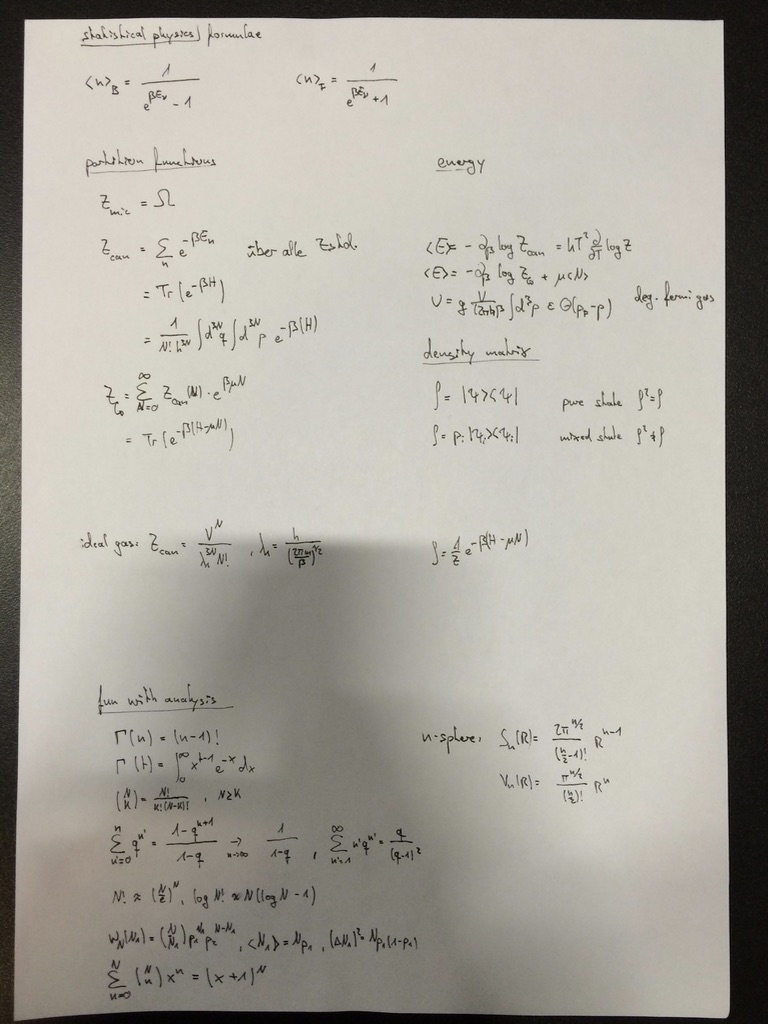 statistical physics formulae
⟨n⟩_B = 1/(e^{βE_ν} - 1)    ⟨n⟩_F = 1/(e^{βE_ν} + 1)
partition functions
Z_mic = Ω
Z_can = Σ_n e^{-βE_n}   über alle Zstd.
= Tr(e^{-βH})
= 1/(N! h^{3N}) ∫d^{3N}q ∫d^{3N}p e^{-β(H)}
Z_G = Σ_{N=0}^∞ Z_can(N) · e^{βμN}
= Tr(e^{-β(H-μN)})
energy
⟨E⟩ = - ∂_β log Z_can = kT² ∂/∂T log Z
⟨E⟩ = - ∂_β log Z_G + μ⟨N⟩
U = g V/(2πħ)³ ∫d³p ε Θ(p_F - p)   deg. fermi gas
density matrix
ρ = |Ψ⟩⟨Ψ|   pure state ρ² = ρ
ρ = p_i |Ψ_i⟩⟨Ψ_i|   mixed state ρ² ≠ ρ
ideal gas: Z_can = V^N/(λ^{3N} N!) , λ = h/(2πm/β)^{1/2}
ρ = 1/Z e^{-β(H-μN)}
fun with analysis
Γ(n) = (n-1)!
Γ(t) = ∫_0^∞ x^{t-1} e^{-x} dx
(N K) = N!/(K!(N-K)!) , N≥K
Σ_{n'=0}^n q^{n'} = (1-q^{n+1})/(1-q) →_{n→∞} 1/(1-q) , Σ_{n'=1}^∞ n'q^{n'} = q/(q-1)²
N! ≈ (N/e)^N , log N! ≈ N(log N - 1)
W_N(N_1) = (N N_1) p_1^{N_1} p_2^{N-N_1} , ⟨N_1⟩ = Np_1 , (ΔN_1)² = Np_1(1-p_1)
Σ_{n=0}^N (N n) x^n = (x+1)^N
n-sphere: S_n(R) = 2π^{n/2}/(n/2-1)! R^{n-1}
V_n(R) = π^{n/2}/(n/2)! R^n